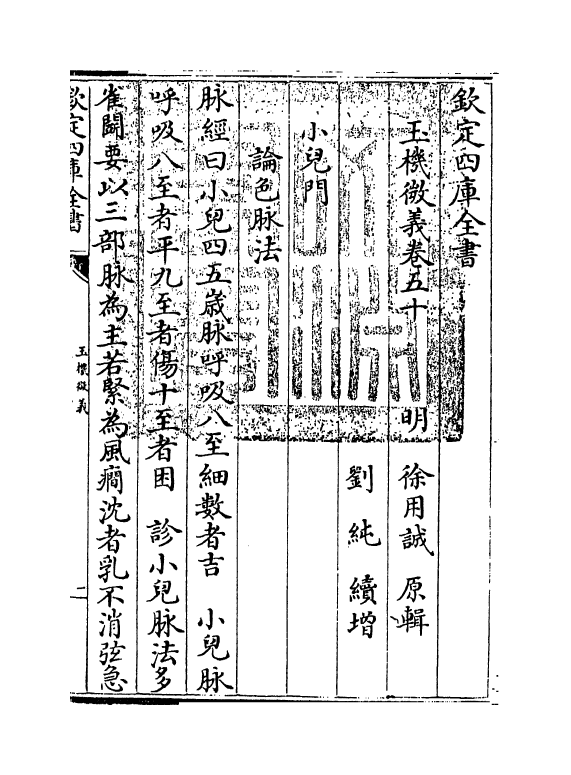 欽定四庫全書
玉機微義卷五十　明　徐用誠　原輯
劉純　續增
小兒門
論色脉法
脉經曰小兒四五歳脉呼吸八至細數者吉　小兒脉
呼吸八至者平九至者傷十至者困　診小兒脉法多
雀鬬要以三部脉為主若緊為風癎沈者乳不消弦急
欽定四庫全書
玉機微義
二